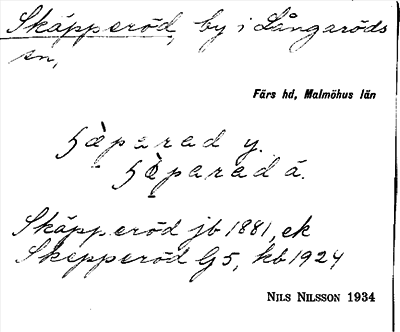 Skäpperöd, by i Långaröds
sn,
Färs hd, Malmöhus län
ɧæ̀parad y.
ɧæ̀parad ä.
Skäpperöd jb 1881, ek
Skepperöd G5, kb 1924
NILS NILSSON 1934